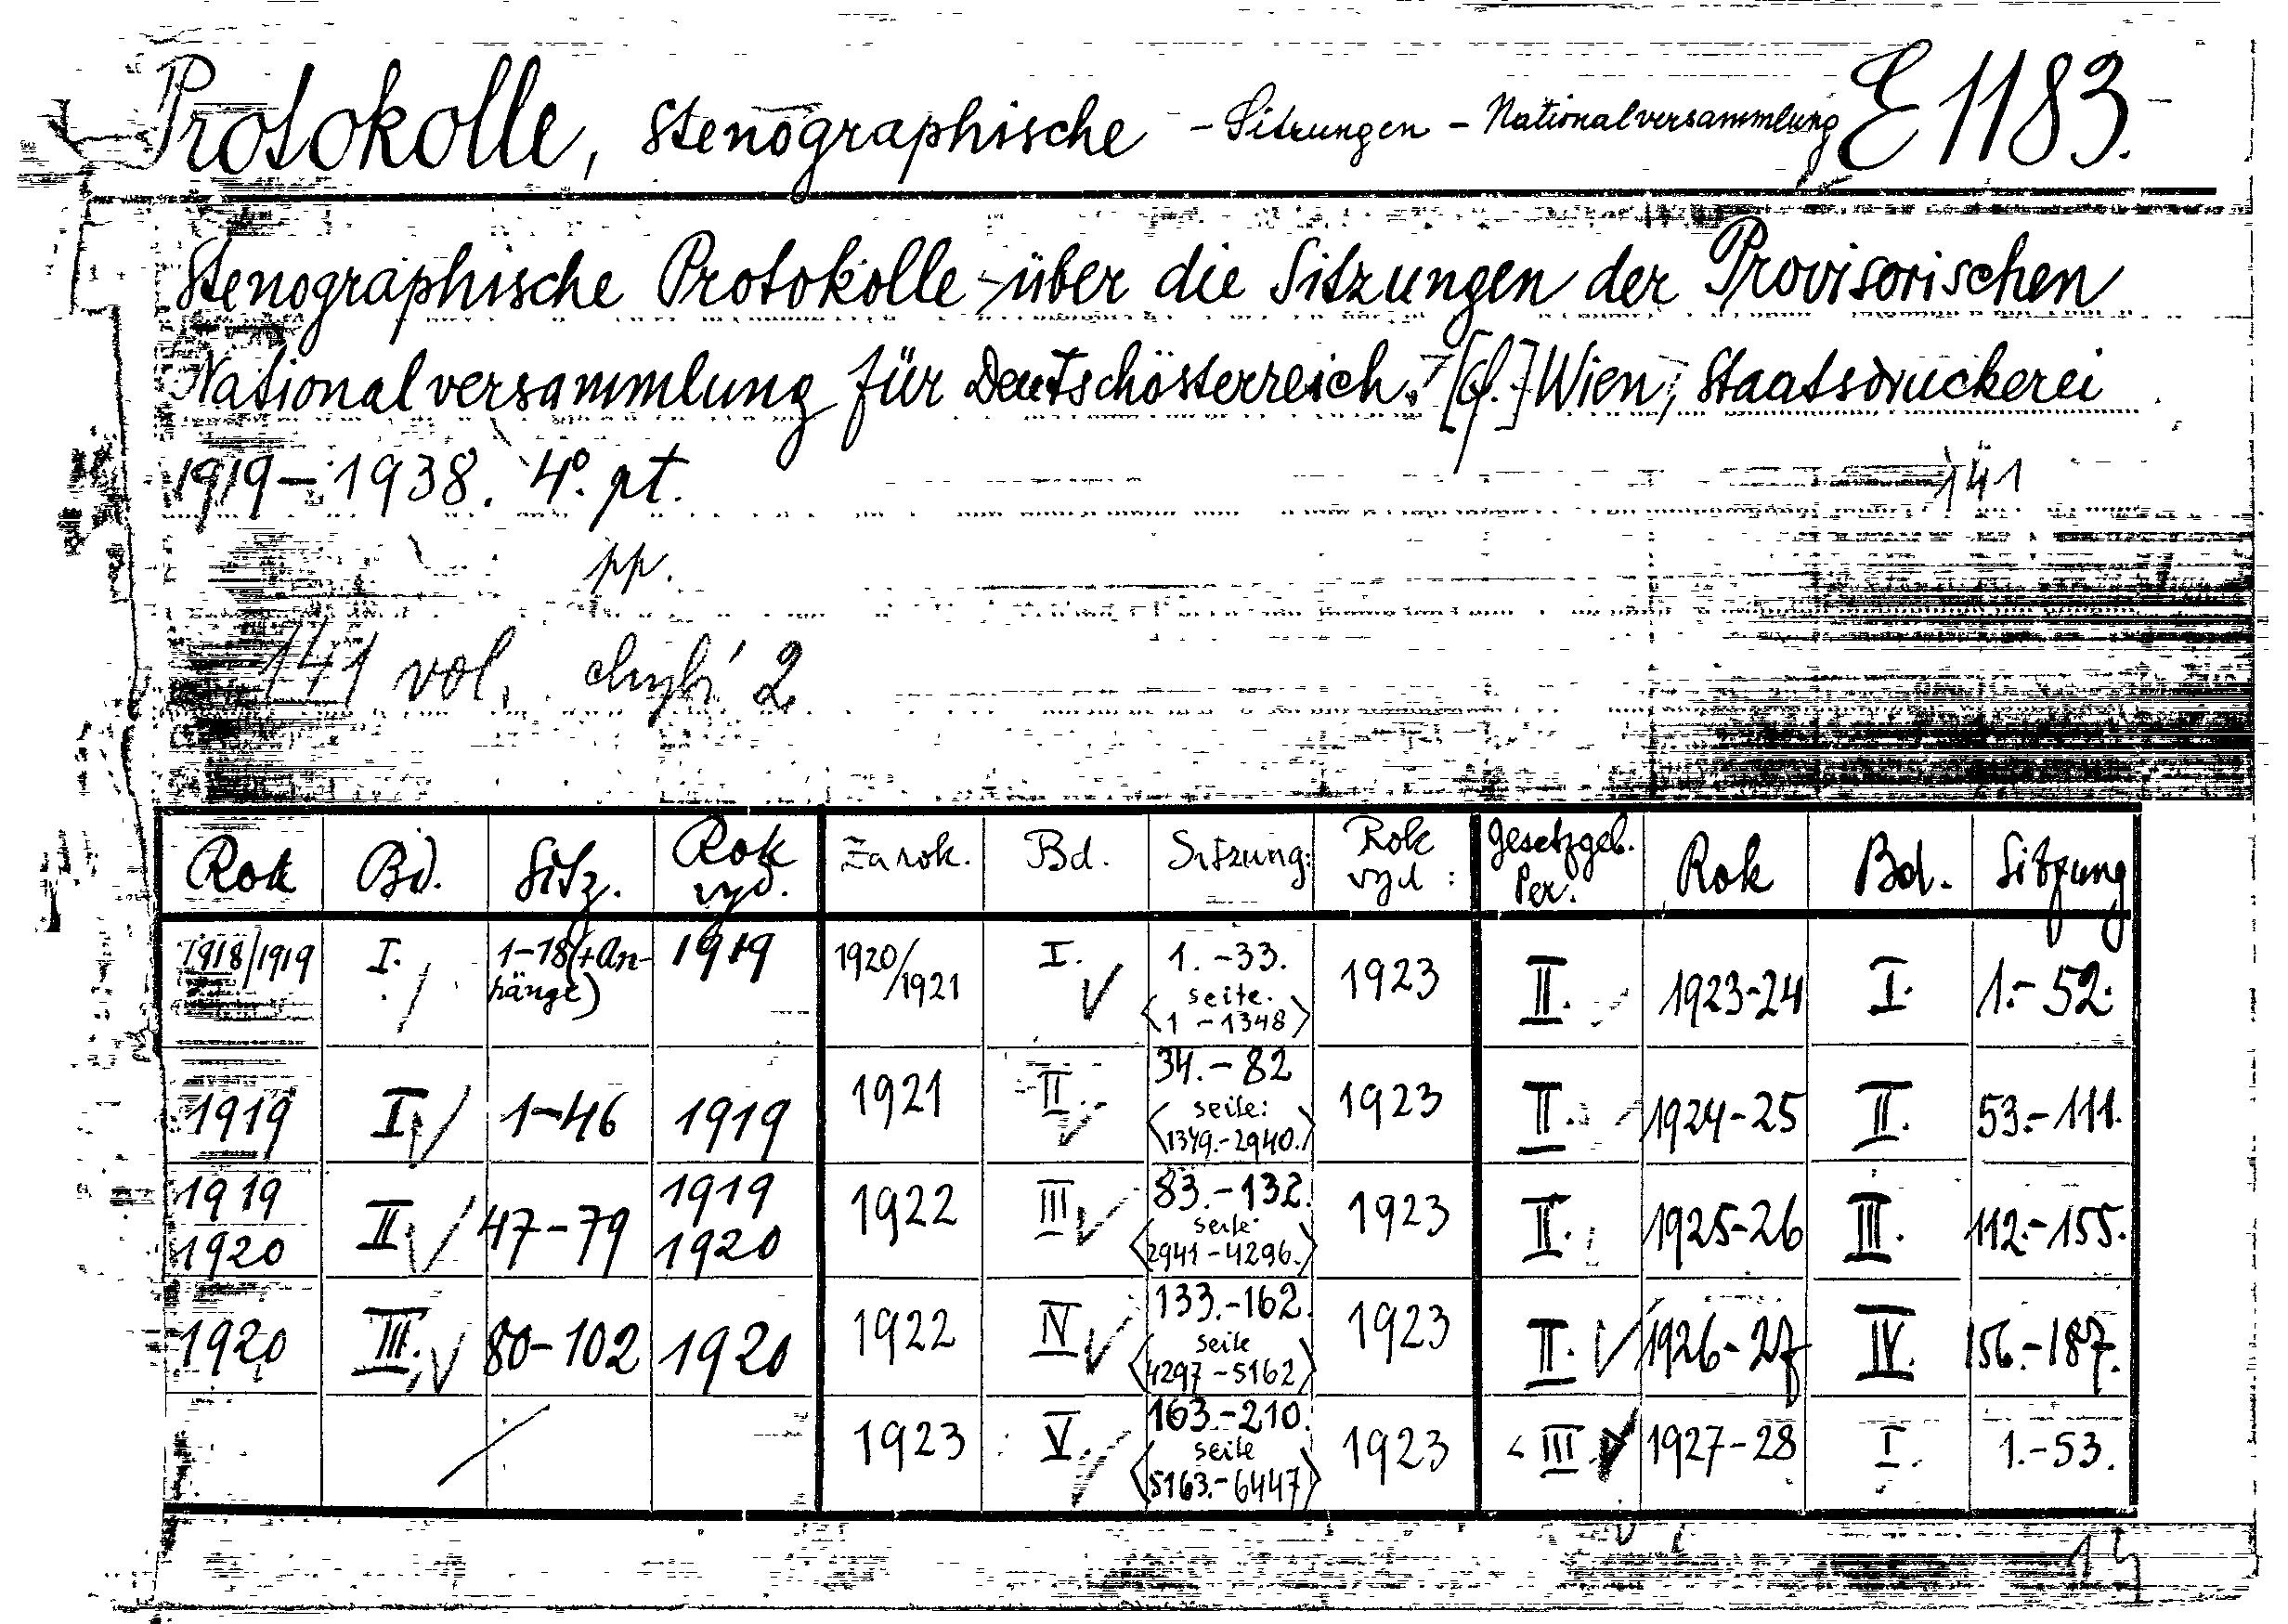 Protokolle, stenographische - Sitzungen - Nationalversammlung E 1183.
Stenographische Protokolle über die Sitzungen der Provisorischen
Nationalversammlung für Deutschösterreich. [f.] Wien, Staatsdruckerei
1919-1938. 4°. pt. 141
pp.
141 vol. chybí 2
Rok Bd. Sitz. Rok vyd. Za rok. Bd. Sitzung: Rok vyd: Gesetzgeb. Per. Rok Bd. Sitzung
1918/1919 I. 1-18 (+Anhänge) 1919 1920/1921 I. V 1.-33. seite. <1-1348> 1923 II. 1923-24 I. 1.-52.
1919 I. V 1-46 1919 1921 II. V 34.-82 seite: <1349.-2940.> 1923 II. 1924-25 II. 53.-111.
1919 1920 II. V 47-79 1919 1920 1922 III V 83.-132. seite: <2941-4296.> 1923 II. 1925-26 III. 112.-155.
1920 III. V 80-102 1920 1922 IV V 133.-162. seite <4297-5162> 1923 II. V 1926-27 IV. 156.-187.
1923 V. 163.-210. seite <5163.-6447> 1923 III V 1927-28 I. 1.-53.